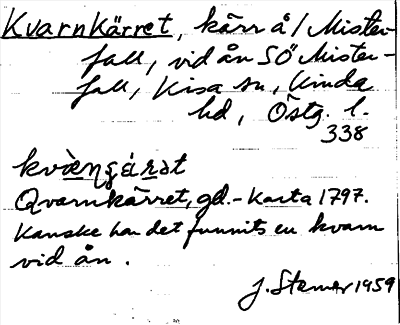 Kvarnkärret, kärr å / Mister-
fall, vid ån SÖ Mister-
fall, Kisa sn, Kinda
hd, Östg. l.
338
kvæ̀ṇçǽrət
Qvarnkärret, gd. - Karta 1797.
Kanske har det funnits en kvarn
vid ån.
J. Stemar 1959